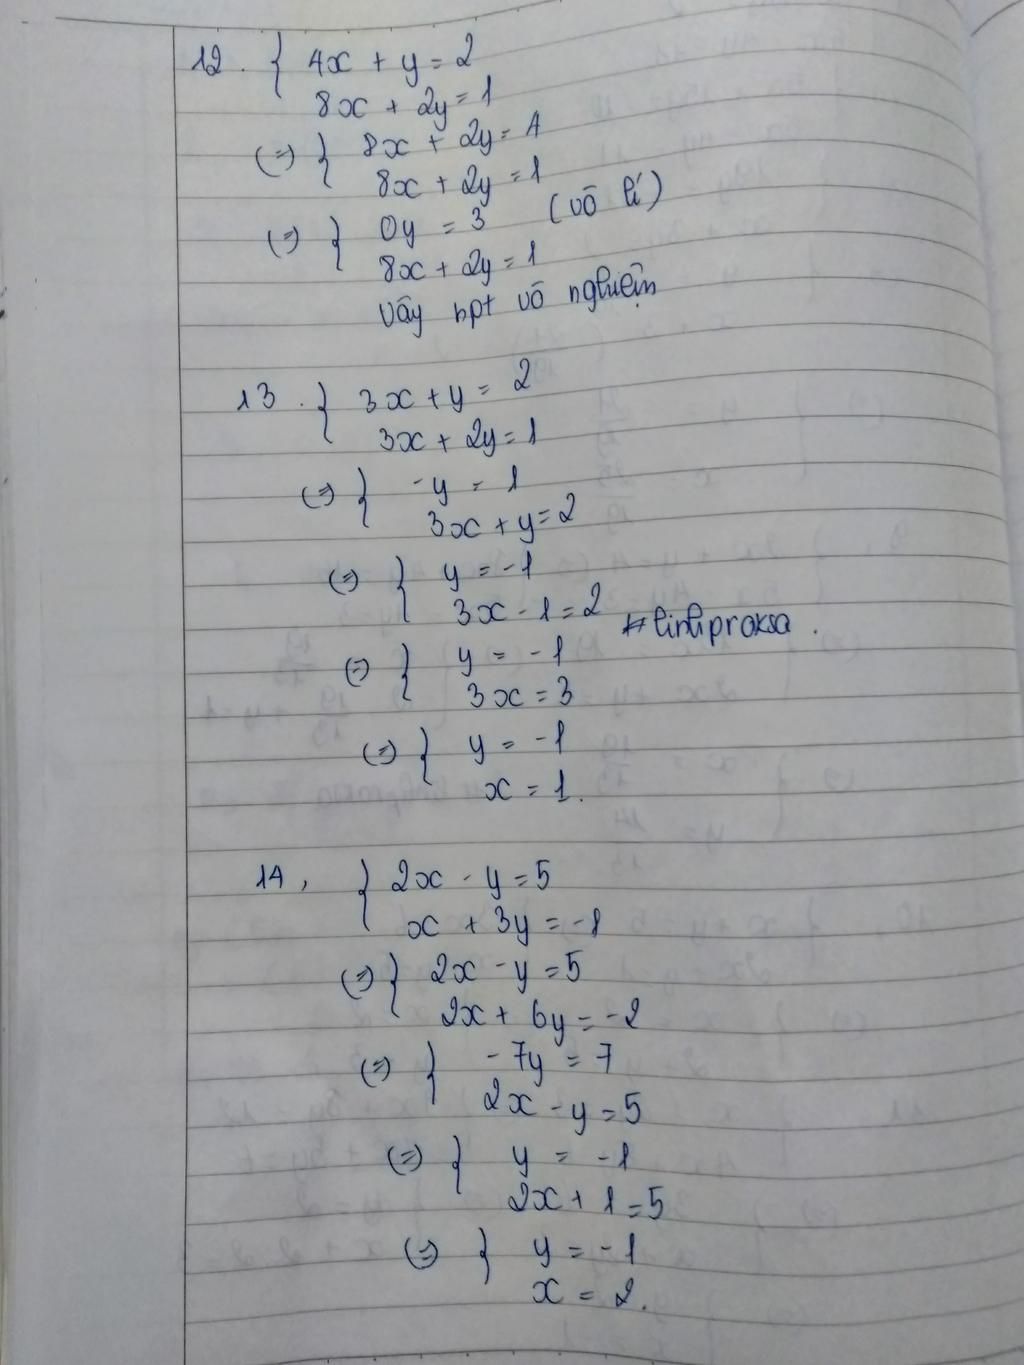 12. { 4x + y = 2
8x + 2y = 1
(=) { 8x + 2y = 4
8x + 2y = 1
(=) { 0y = 3 (vô lí)
8x + 2y = 1
Vây hpt vô nghiệm
13. { 3x + y = 2
3x + 2y = 1
(=) { -y = 1
3x + y = 2
(=) { y = -1
3x - 1 = 2
#linliproksa.
(=) { y = -1
3x = 3
(=) { y = -1
x = 1.
14, { 2x - y = 5
x + 3y = -1
(=) { 2x - y = 5
2x + 6y = -2
(=) { -7y = 7
2x - y = 5
(=) { y = -1
2x + 1 = 5
(=) { y = -1
x = 2.